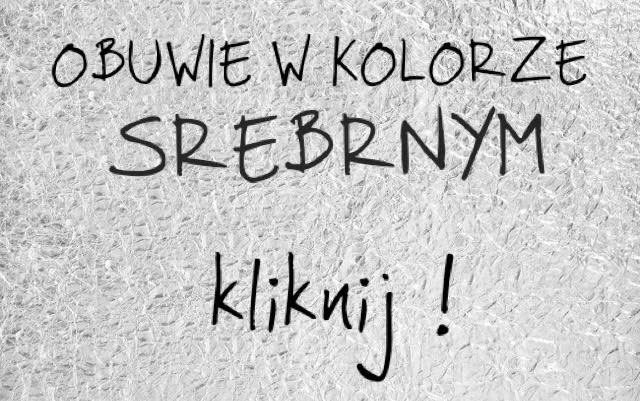 OBUWIE W KOLORZE
SREBRNYM
kliknij !